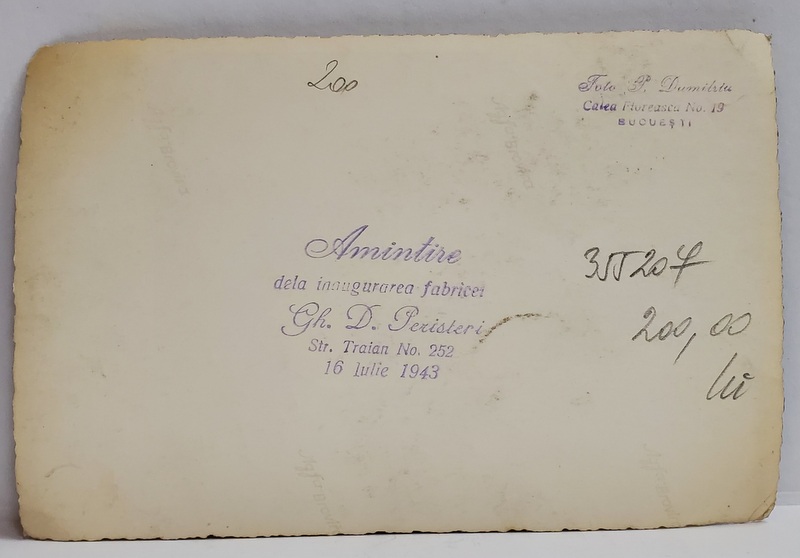 200
Foto P. Dumitriu
Calea Floreasca No. 19
BUCUEȘTI
Amintire
dela inaugurarea fabricei
Gh. D. Peristeri
Str. Traian No. 252
16 Iulie 1943
200,00
lei